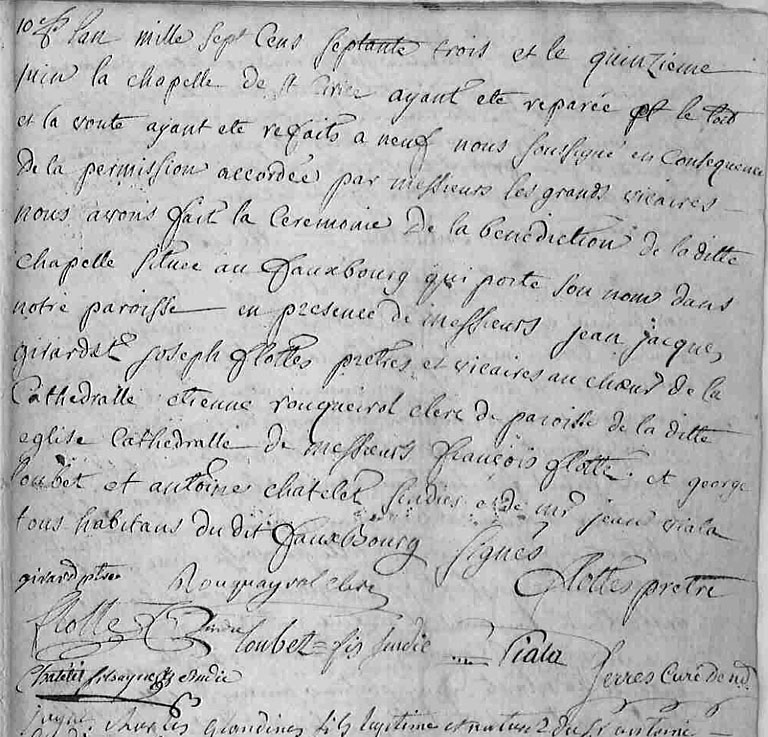 Lan mille sept Cens septante trois et le quinzieme
juin la chapelle de st Cirice ayant ete reparée et le toit
et la voute ayant ete refaits a neuf nous soussigné en Consequence
de la permission accordée par messieurs les grands vicaires
nous avons fait la Ceremonie de la benediction de laditte
chapelle située au fauxbourg qui porte son nom dans
notre paroisse en presence de messieurs jean jacques
girard et joseph flottes pretres et vicaires au chœur de la
Cathedralle etienne rouqueirol clerc de paroisse de la ditte
eglise Cathedralle de messieurs françois flotte et george
loubet et antoine chatelet sendics et de mr jean viala
tous habitans du dit fauxbourg signés
girard ptre Rouquayrol clerc flottes pretre
flotte loubet fis sindic Viala Serres Curé de nd
sindic
Charles fils legitime et naturel du Sr antoine